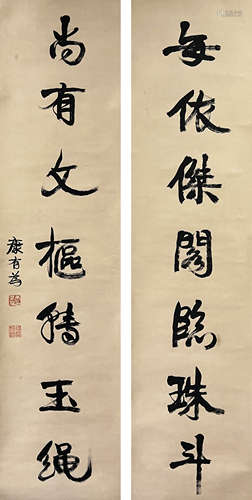 每依傑閣臨珠斗
尚有文樞轉玉繩
康有為